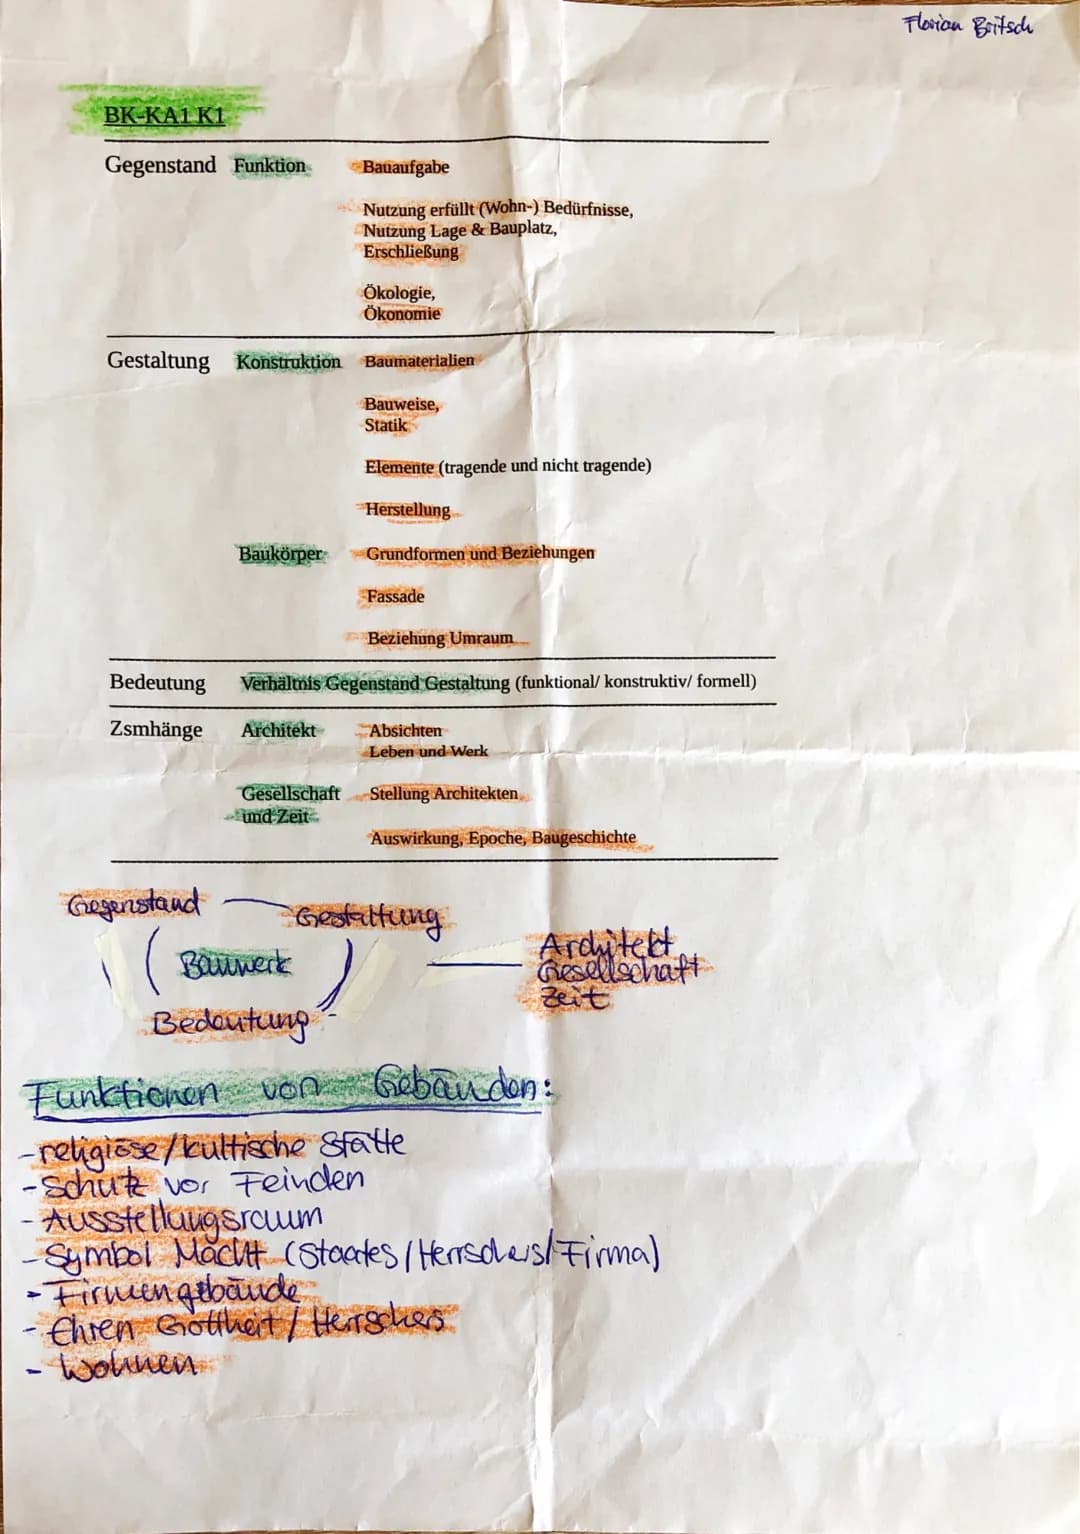 Florian Britsch
BK-KA1 K1
Gegenstand Funktion Bauaufgabe
Nutzung erfüllt (Wohn-) Bedürfnisse,
Nutzung Lage & Bauplatz,
Erschließung
Ökologie,
Ökonomie
Gestaltung Konstruktion Baumaterialien
Bauweise,
Statik
Elemente (tragende und nicht tragende)
Herstellung
Baukörper Grundformen und Beziehungen
Fassade
Beziehung Umraum
Bedeutung Verhältnis Gegenstand Gestaltung (funktional/ konstruktiv/ formell)
Zsmhänge Architekt Absichten
Leben und Werk
Gesellschaft Stellung Architekten
und Zeit
Auswirkung, Epoche, Baugeschichte
Gegenstand Gestaltung
Bauwerk
Bedeutung
Architekt
Gesellschaft
Zeit
Funktionen von Gebäuden:
- religiöse/kultische Stätte
- Schutz vor Feinden
- Ausstellungsraum
- Symbol Macht (Staates/Herrschers/Firma)
- Firmengebäude
- Ehren Gottheit/Herrschers
- Wohnen